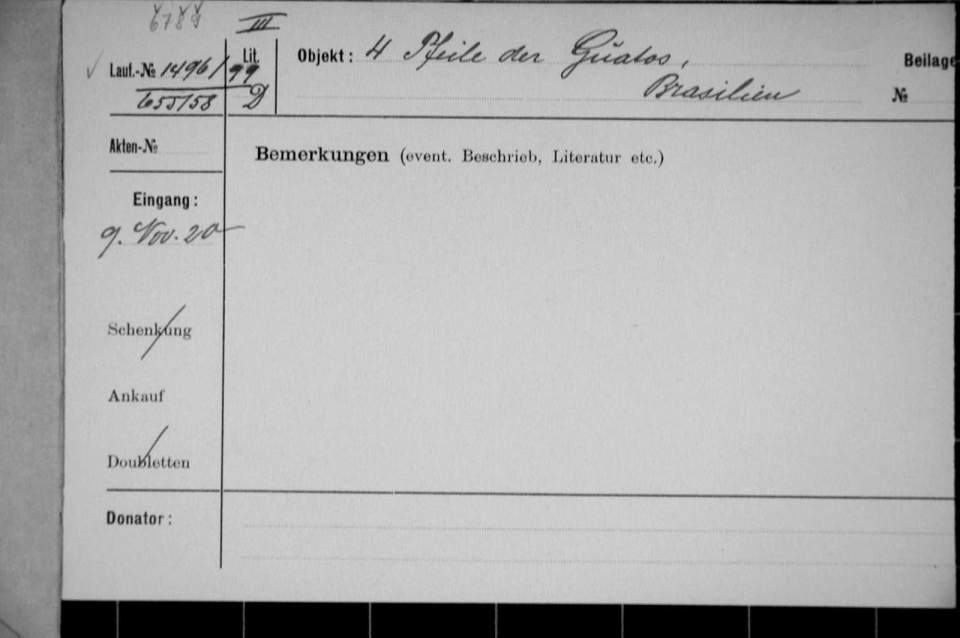 6789 III
Lauf.-№ 1496/99 Lit. Objekt: 4 Pfeile der Guatos, Beilage
655/58 D Brasilien №
Akten-№
Bemerkungen (event. Beschrieb, Literatur etc.)
Eingang:
9. Nov. 20
Schenkung
Ankauf
Doubletten
Donator: